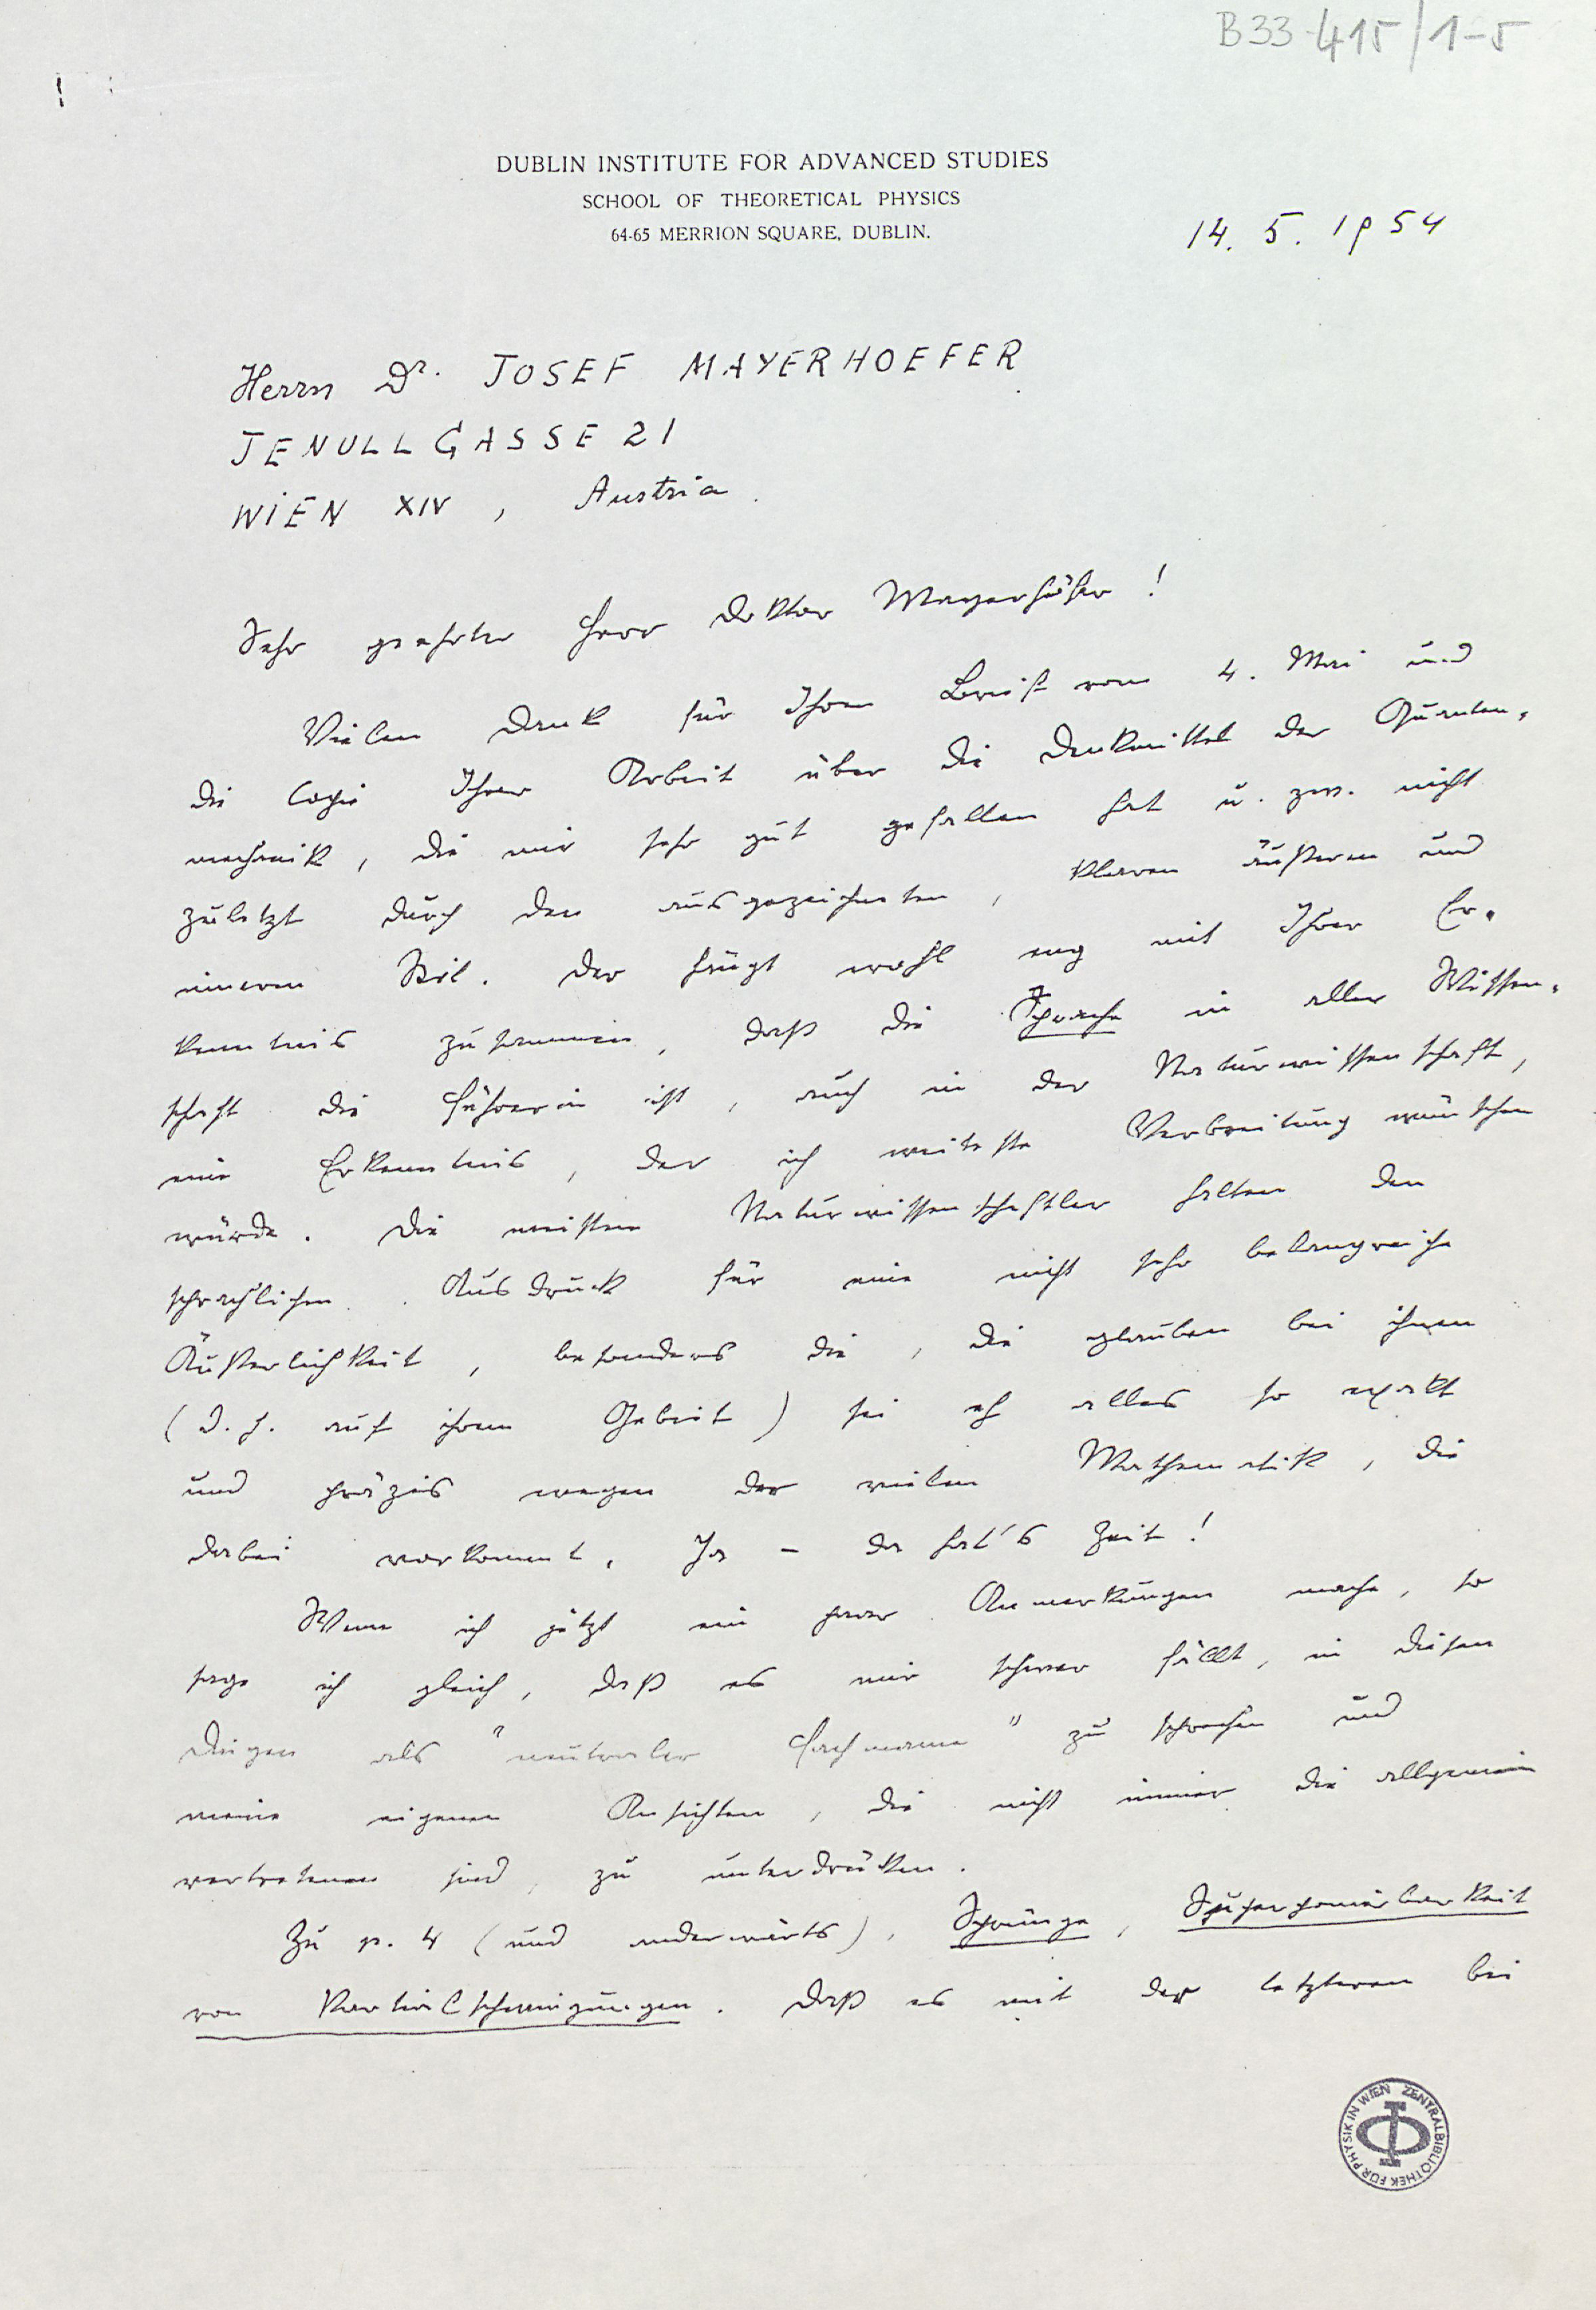 B33-415/1-5
DUBLIN INSTITUTE FOR ADVANCED STUDIES
SCHOOL OF THEORETICAL PHYSICS
64-65 MERRION SQUARE, DUBLIN.
14. 5. 1954
Herrn Dr. JOSEF MAYERHOEFER
JENULLGASSE 21
WIEN XIV, Austria.
Sehr geehrter Herr Doktor Mayerhöfer!
Vielen Dank für Ihren Brief vom 4. Mai und
die Copie Ihrer Arbeit über die Denkmittel der Quanten-
mechanik, die mir sehr gut gefallen hat u. zw. nicht
zuletzt durch den ausgezeichneten, klaren äußeren und
inneren Stil. Der hängt wohl eng mit Ihrer Er-
kenntnis zusammen, daß die Sprache in aller Wissen-
schaft die Führerin ist, auch in der Naturwissenschaft,
eine Erkenntnis, der ich weiteste Verbreitung wünschen
würde. Die meisten Naturwissenschaftler halten den
sprachlichen Ausdruck für eine nicht sehr belangreiche
Äußerlichkeit, besonders die, die glauben bei ihnen
(d.h. auf ihrem Gebiet) sei eh alles so exakt
und präzis wegen der vielen Mathematik, die
dabei vorkommt. Ja – da hat's Zeit!
Wenn ich jetzt ein paar Anmerkungen mache, so
sage ich gleich, daß es mir schwer fällt, in diesen
Dingen als "neutraler Fachmann" zu sprechen und
meine eigenen Ansichten, die nicht immer die allgemein
vertretenen sind, zu unterdrücken.
Zu p. 4 (und anderwärts), Sprünge, Superponierbarkeit
von Partialschwingungen. Daß es mit der letzteren bei
ZENTRALBIBLIOTHEK FÜR PHYSIK IN WIEN